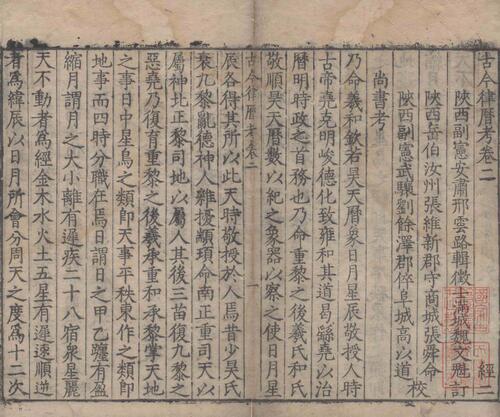 古今律曆考卷二
陜西副憲安肅邢雲路輯徵士滿城魏文魁訂
陜西岳伯汝州張維新郡守商城張舜命
陜西副憲武驤劉餘澤郡倅阜城高以道
校
尚書考
乃命羲和欽若昊天曆象日月星辰敬授人時
古帝堯克明峻德化致雍和其道曷繇堯以治
曆明時政之首務也乃命重黎之後羲氏和氏
敬順昊天曆數以紀之象器以察之使日月星
古今律曆考卷二
一
辰各得其所以此天時敬授於人焉昔少昊氏
衰九黎亂德神人雜擾顓頊命南正重司天以
屬神北正黎司地以屬人其後三苗復九黎之
惡堯乃復育重黎之後羲承重和承黎掌天地
之事日中星鳥之類即天事平秩東作之類即
地事而四時分職在焉日謂日之甲乙躔有盈
縮月謂月之大小離有遲疾二十八宿衆星麗
天不動者為經金木水火土五星有遲速順逆
者為緯辰以日月所會分周天之度為十二次
經二